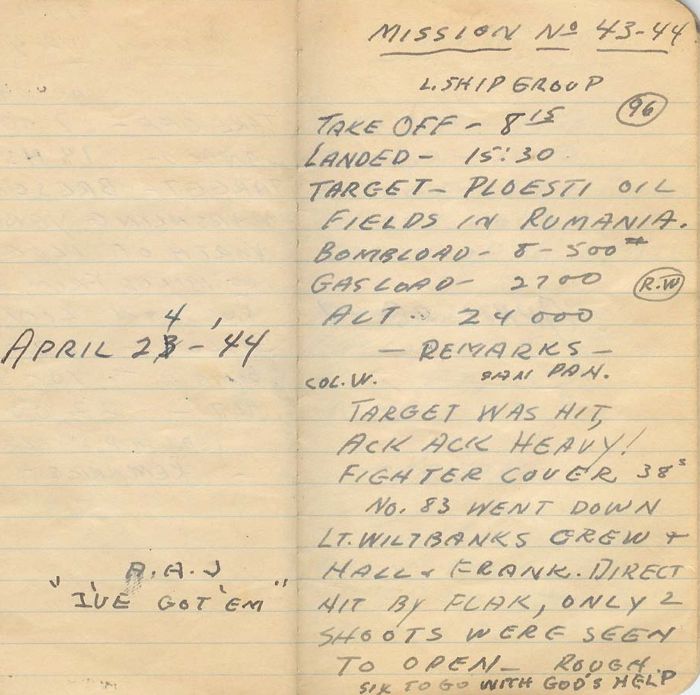 APRIL 24 - '44
A.A.J
"I'VE GOT 'EM"
MISSION No 43-44
L. SHIP GROUP
96
TAKE OFF - 8 15
LANDED - 15:30
TARGET - PLOESTI OIL
FIELDS IN RUMANIA.
BOMBLOAD - 8 - 500#
GASLOAD - 2700
R.W
ALT. - 24 000
- REMARKS -
COL. W. PAN.
TARGET WAS HIT,
ACK ACK HEAVY!
FIGHTER COVER 38s
No. 83 WENT DOWN
LT. WILTBANKS CREW +
HALL + FRANK. DIRECT
HIT BY FLAK, ONLY 2
SHOOTS WERE SEEN
TO OPEN - ROUGH.
SIX TO GO WITH GOD'S HELP